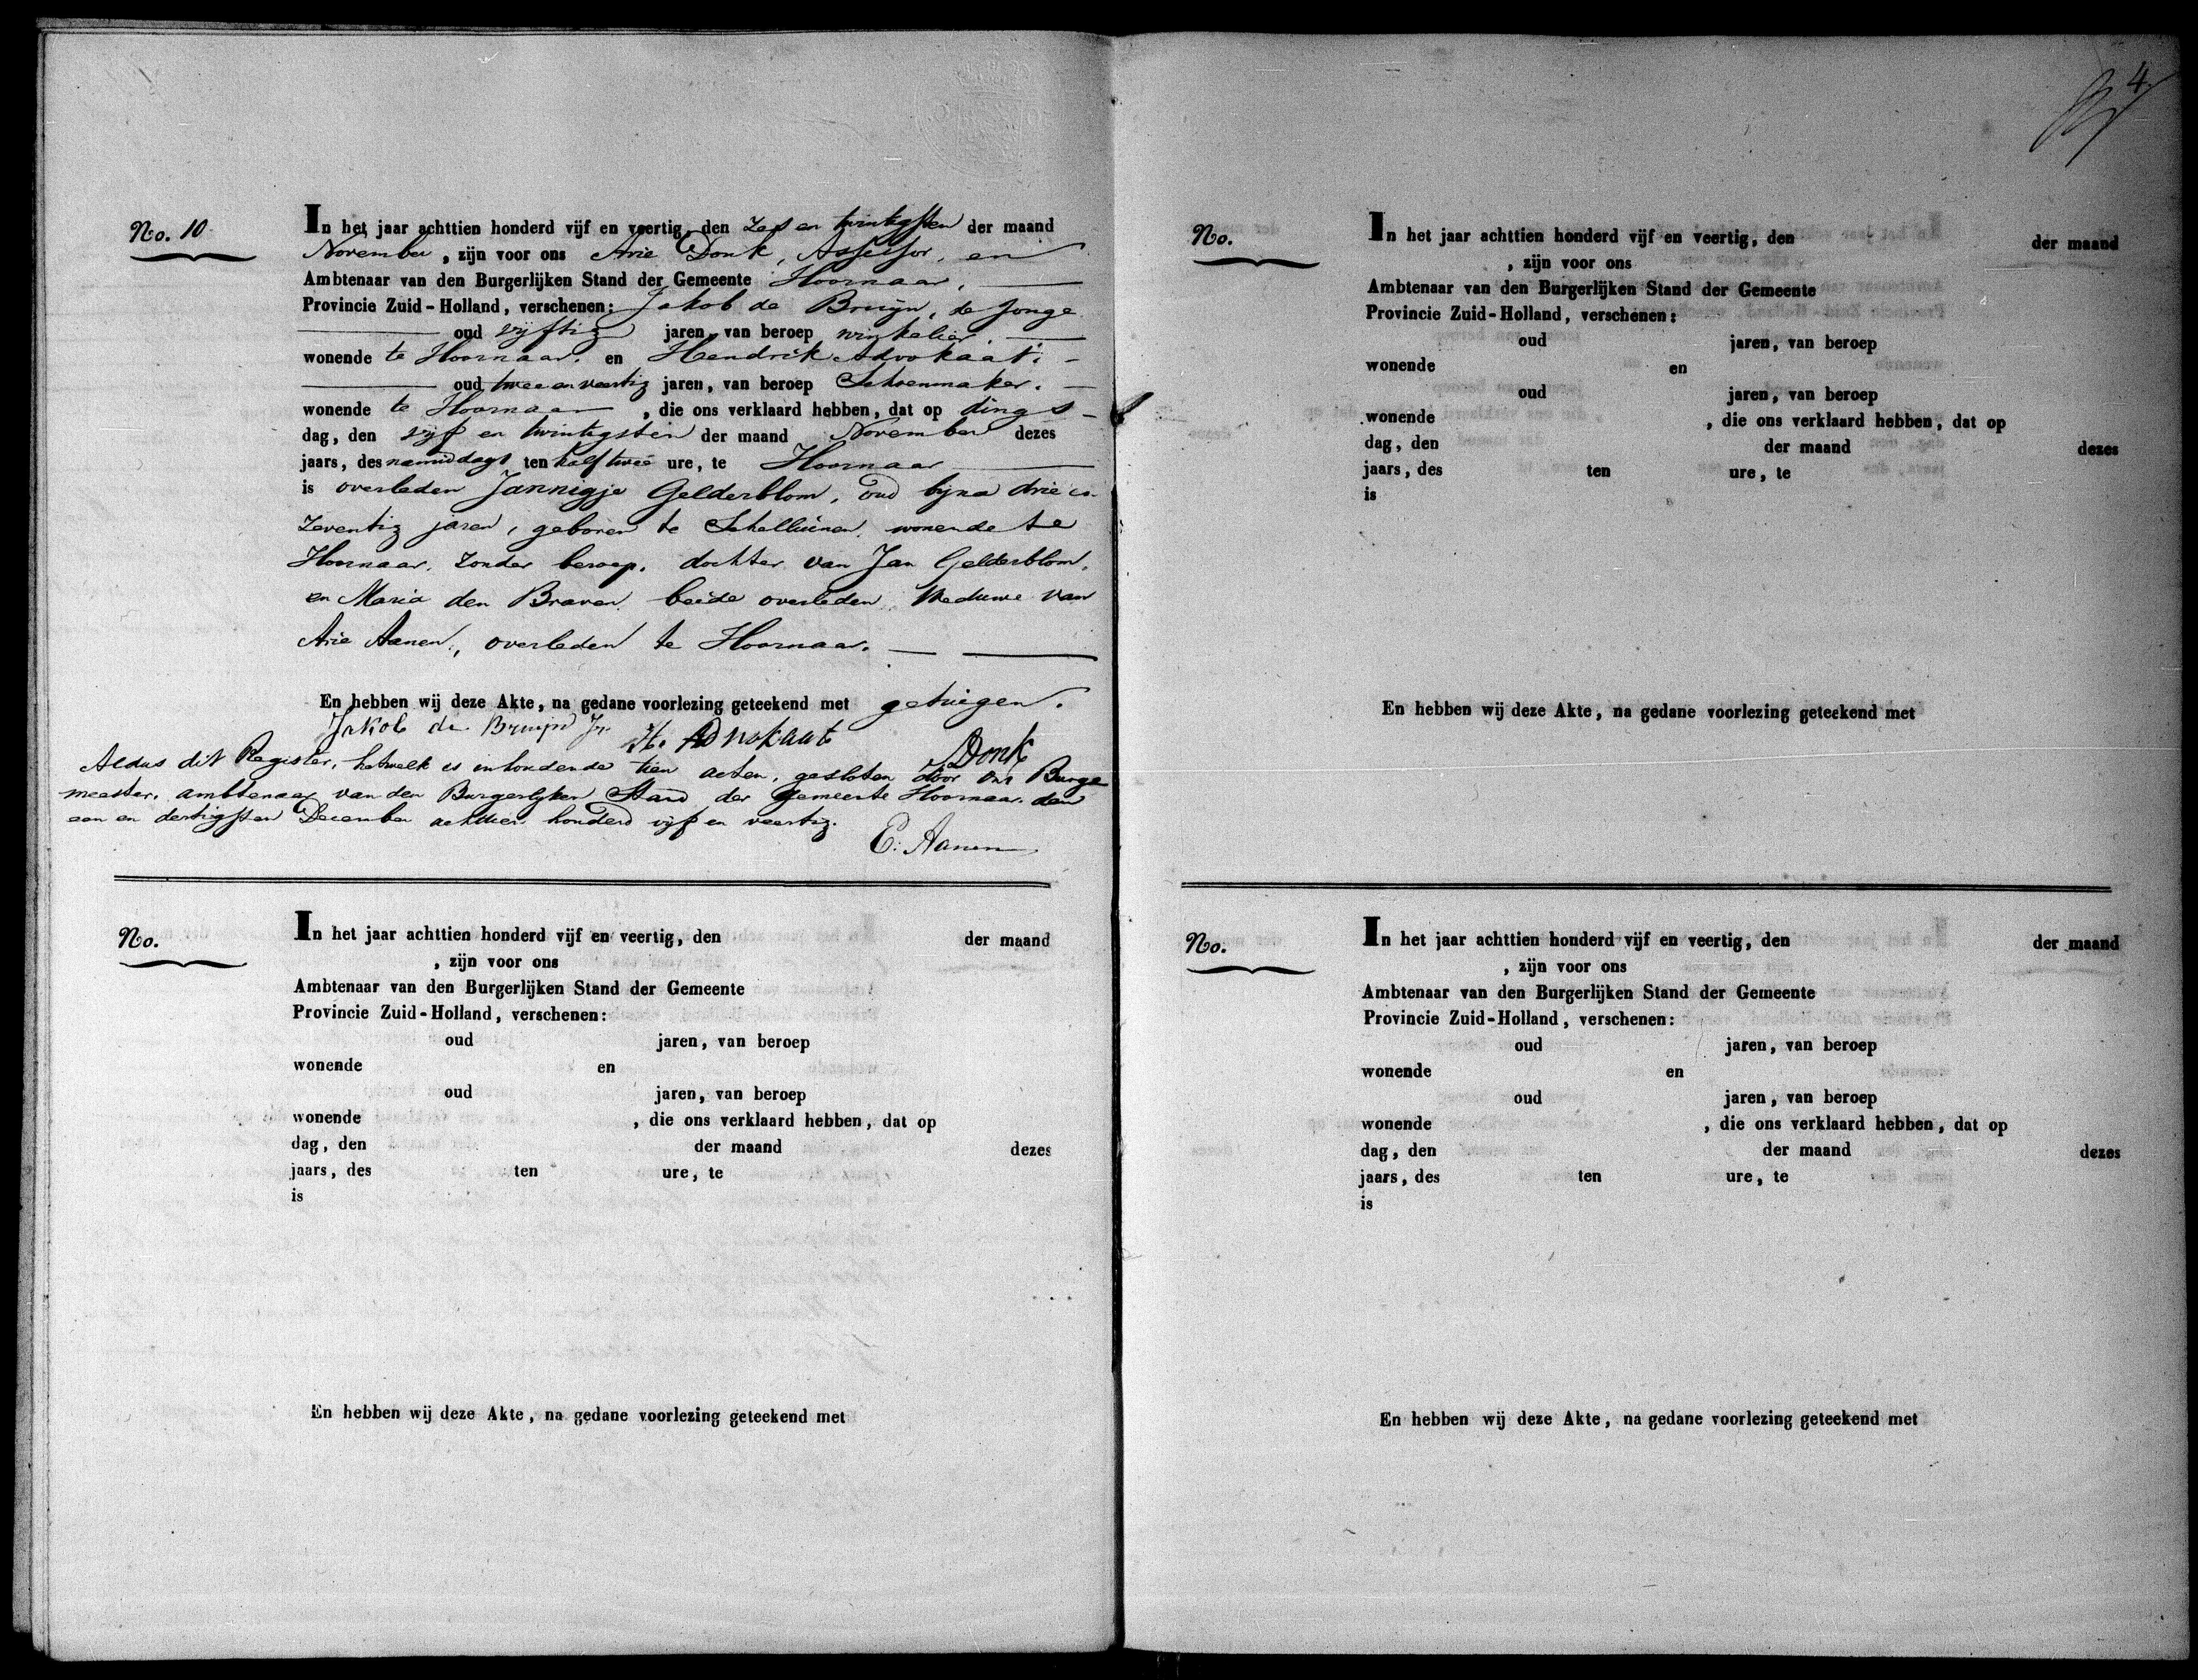 No. 10
In het jaar achttien honderd vijf en veertig, den zes en twintigsten der maand
November, zijn voor ons Arie Donk, Assessor, en
Ambtenaar van den Burgerlijken Stand der Gemeente Hoornaar,
Provincie Zuid-Holland, verschenen: Jakob de Bruijn, de jonge
oud vijftig jaren, van beroep winkelier,
wonende te Hoornaar, en Hendrik Advokaat,
oud twee en veertig jaren, van beroep Schoenmaker,
wonende te Hoornaar, die ons verklaard hebben, dat op dings-
dag, den vijf en twintigsten der maand November dezes
jaars, des namiddags ten half twee ure, te Hoornaar
is overleden Jannigje Gelderblom, oud bijna drie en
zeventig jaren, geboren te Schelluinen, wonende te
Hoornaar, zonder beroep, dochter van Jan Gelderblom,
en Maria den Braven, beide overleden, Weduwe van
Arie Aanen, overleden te Hoornaar.
En hebben wij deze Akte, na gedane voorlezing geteekend met getuigen.
Jakob de Bruijn Jr.
H. Advokaat
ADonk
Aldus dit Register, hetwelk is inhoudende tien acten, gesloten door ons Burge
meester, ambtenaar van den Burgerlyken Stand der gemeente Hoornaar, den
een en dertigsten December achttien honderd vijf en veertig.
E. Aanen
No.
In het jaar achttien honderd vijf en veertig, den der maand
, zijn voor ons
Ambtenaar van den Burgerlijken Stand der Gemeente
Provincie Zuid-Holland, verschenen:
oud jaren, van beroep
wonende en
oud jaren, van beroep
wonende , die ons verklaard hebben, dat op
dag, den der maand dezes
jaars, des ten ure, te
is
En hebben wij deze Akte, na gedane voorlezing geteekend met
4
No.
In het jaar achttien honderd vijf en veertig, den der maand
, zijn voor ons
Ambtenaar van den Burgerlijken Stand der Gemeente
Provincie Zuid-Holland, verschenen:
oud jaren, van beroep
wonende en
oud jaren, van beroep
wonende , die ons verklaard hebben, dat op
dag, den der maand dezes
jaars, des ten ure, te
is
En hebben wij deze Akte, na gedane voorlezing geteekend met
No.
In het jaar achttien honderd vijf en veertig, den der maand
, zijn voor ons
Ambtenaar van den Burgerlijken Stand der Gemeente
Provincie Zuid-Holland, verschenen:
oud jaren, van beroep
wonende en
oud jaren, van beroep
wonende , die ons verklaard hebben, dat op
dag, den der maand dezes
jaars, des ten ure, te
is
En hebben wij deze Akte, na gedane voorlezing geteekend met